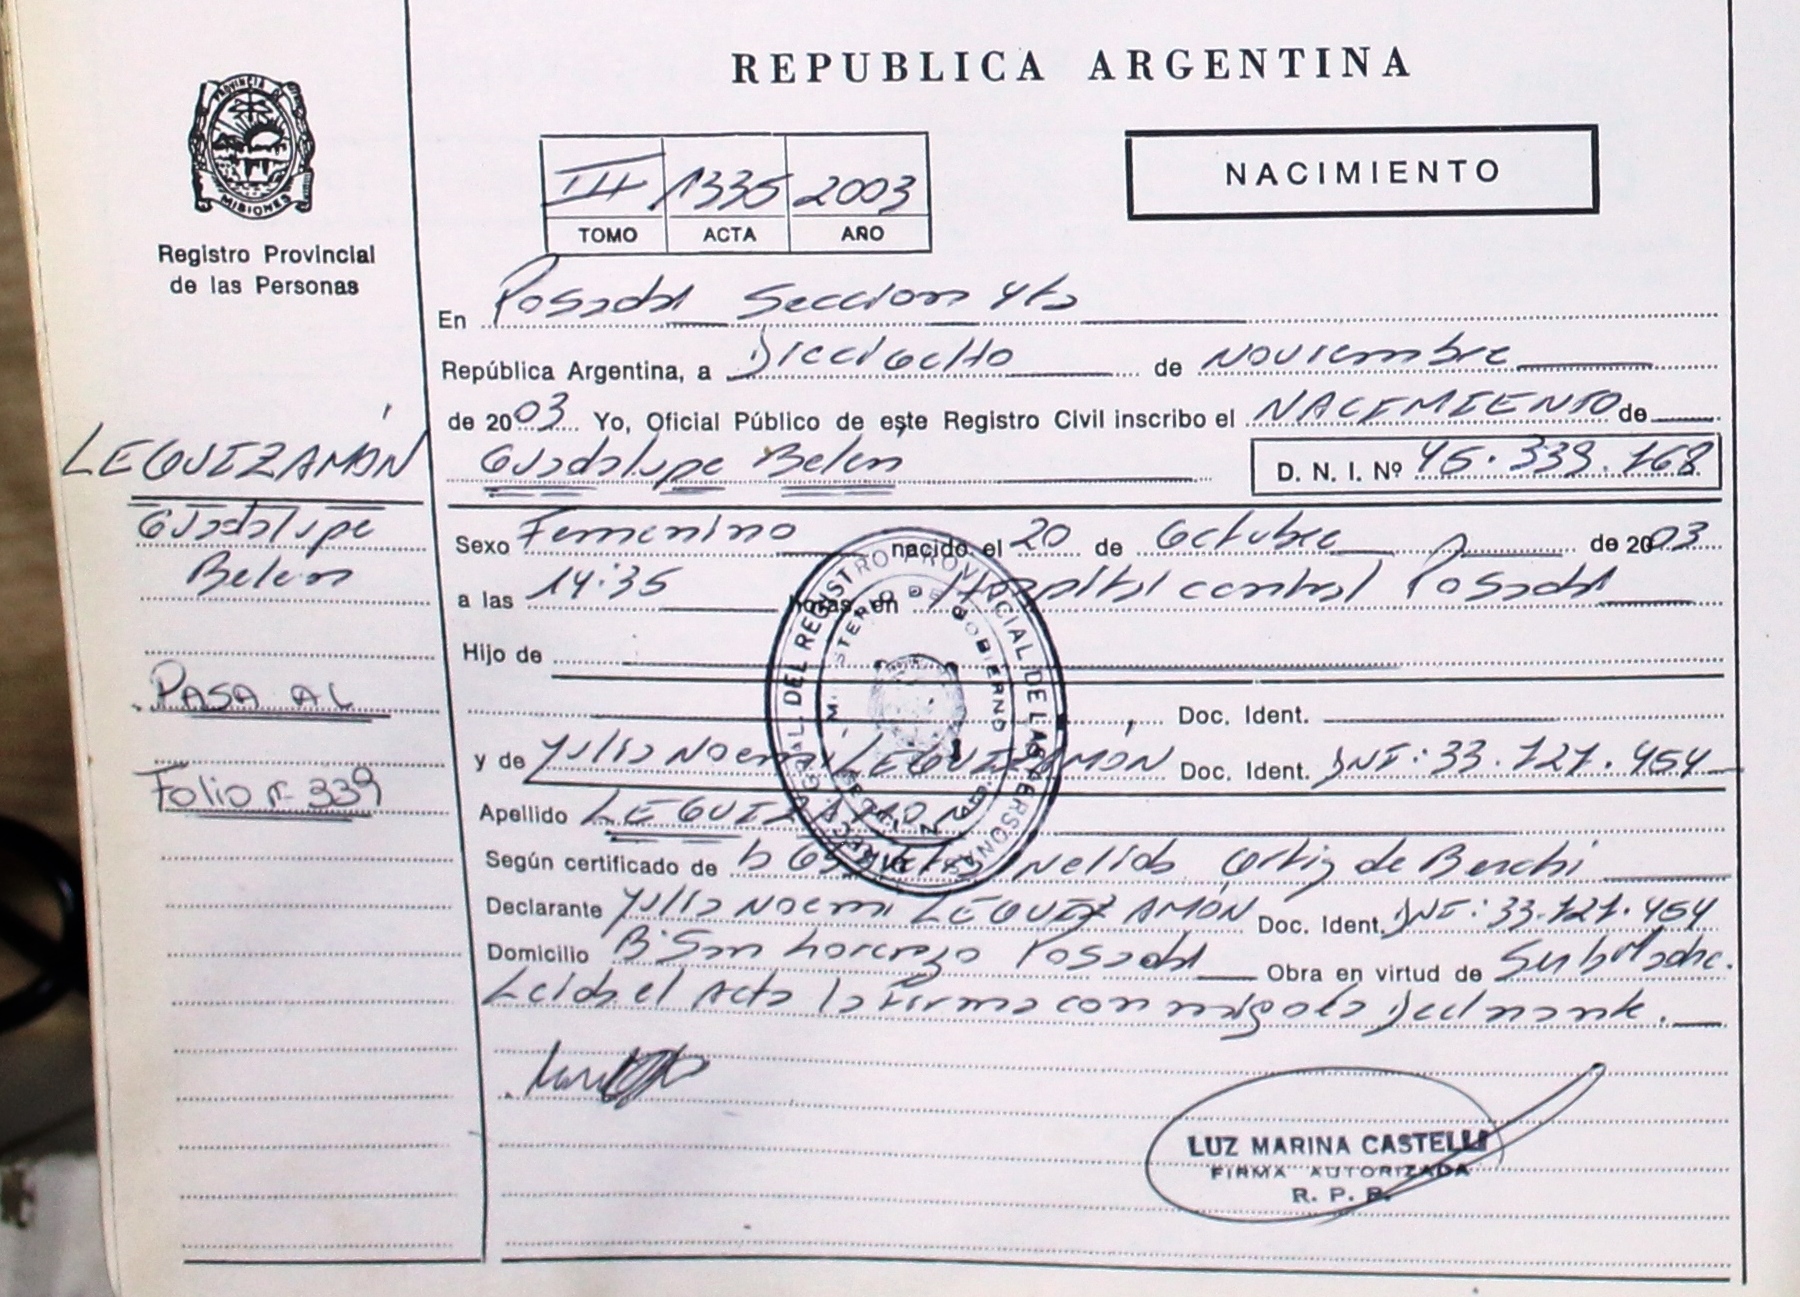 REPUBLICA ARGENTINA
PROVINCIA DE
MISIONES
Registro Provincial
de las Personas
III 1335 2003
TOMO ACTA AÑO
NACIMIENTO
En Posadas Seccion 4ta
República Argentina, a Dieciocho de Noviembre
de 2003 Yo, Oficial Público de este Registro Civil inscribo el NACIMIENTO de
Guadalupe Belen D. N. I. Nº 45.339.168
LEGUIZAMÓN
Guadalupe
Belen
PASA AL
Folio nº 339
Sexo Femenino nacido el 20 de Octubre de 2003
a las 14:35 horas, en Hospital central Posadas
Hijo de
Doc. Ident.
y de Julia Noemi LEGUIZAMÓN Doc. Ident. DNI: 33.121.454
Apellido LEGUIZAMON
Según certificado de Nelida Ortiz de Berchi
Declarante Julia Noemi LEGUIZAMÓN Doc. Ident. DNI: 33.121.454
Domicilio Bº San Lorenzo Posadas Obra en virtud de
Leida el Acta la firma conmigo la Declarante.
DEL REGISTRO PROVINCIAL DE LAS PERSONAS
MINISTERIO DE GOBIERNO
LUZ MARINA CASTELLI
FIRMA AUTORIZADA
R. P. P.